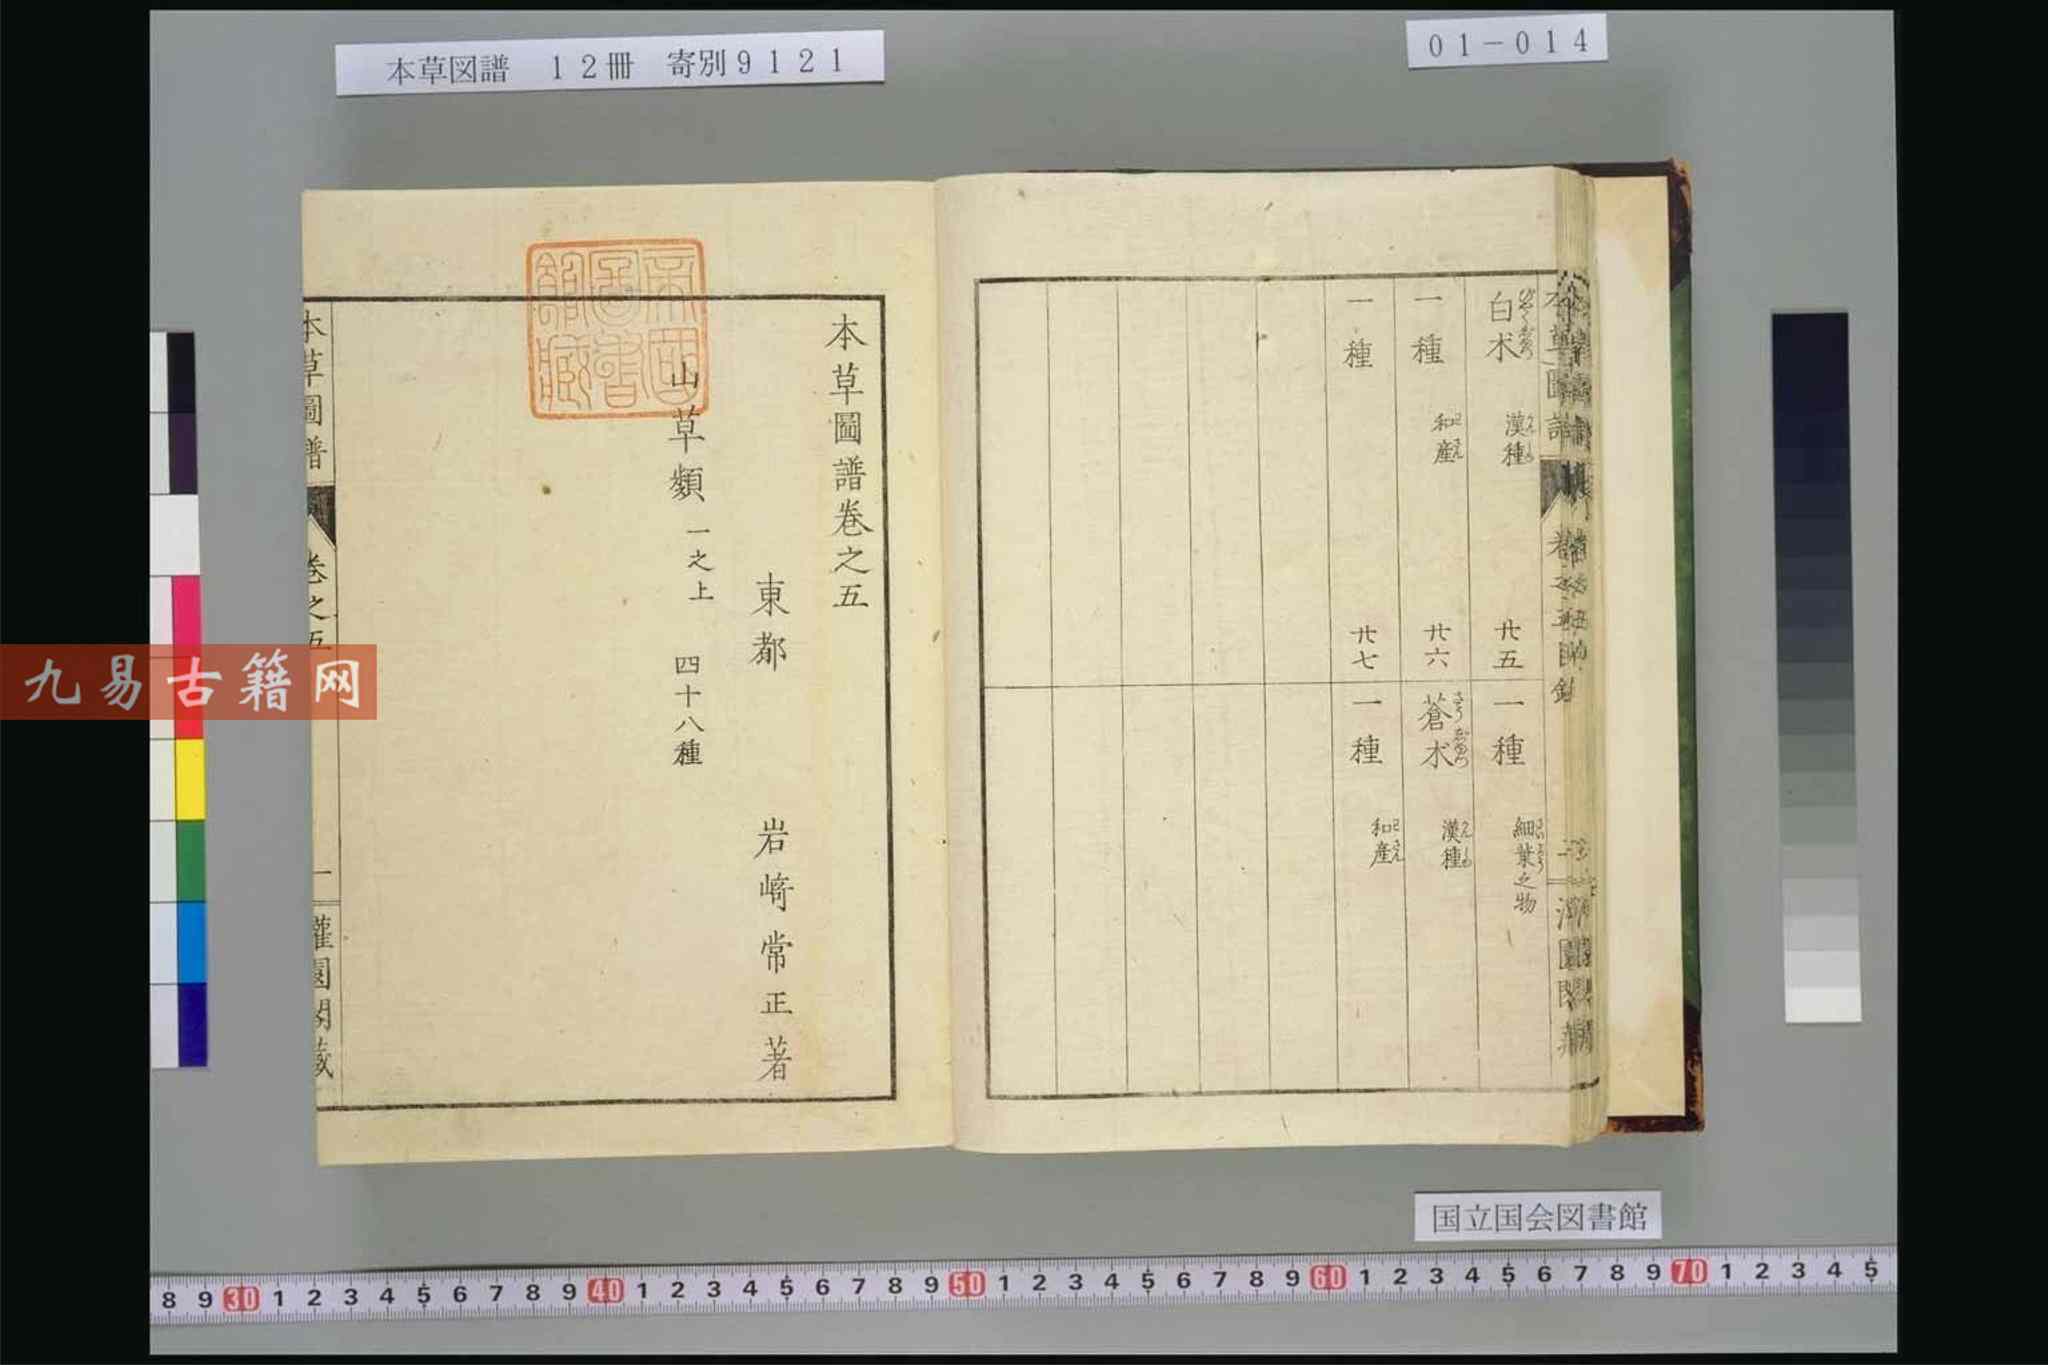 本草図譜　１２冊　寄別９１２１
０１－０１４
白朮 漢種 廿五
一種 和産 廿六
一種 廿七
一種 細葉之物
蒼朮 漢種
一種 和産
本草圖譜卷之五
東都 岩﨑常正著
山草類 一之上 四十八種
本草圖譜 卷之五 一 灌園閣藏
帝國圖書館藏
九易古籍网
国立国会図書館
8 9 30 1 2 3 4 5 6 7 8 9 40 1 2 3 4 5 6 7 8 9 50 1 2 3 4 5 6 7 8 9 60 1 2 3 4 5 6 7 8 9 70 1 2 3 4 5